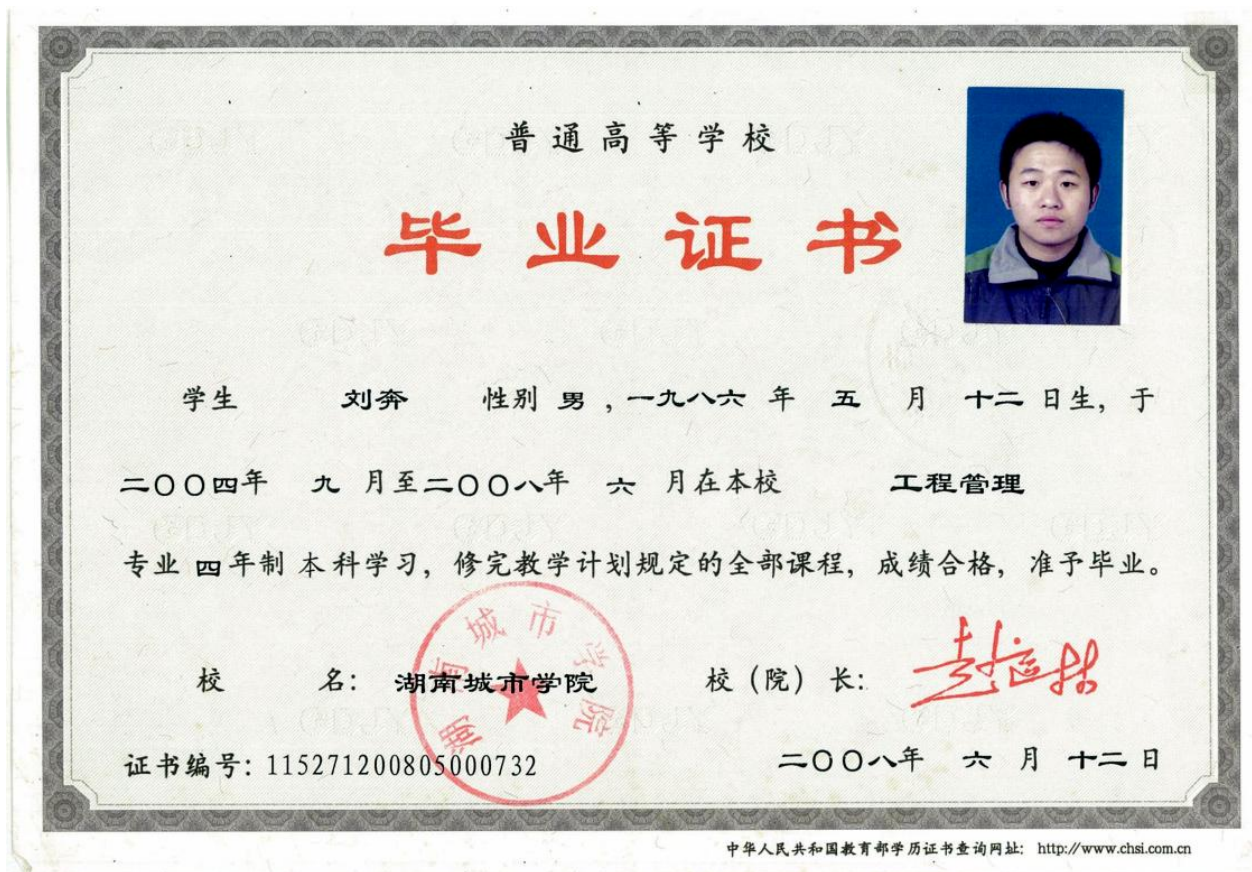 普通高等学校
毕业证书
学生 刘奔 性别 男 ,一九八六 年 五 月 十二 日生, 于
二〇〇四年 九 月至二〇〇八年 六 月在本校 工程管理
专业 四 年制 本科学习, 修完教学计划规定的全部课程, 成绩合格, 准予毕业。
湖南城市学院
校 名: 湖南城市学院 校(院)长:
证书编号: 115271200805000732 二〇〇八年 六 月 十二 日
中华人民共和国教育部学历证书查询网址: http://www.chsi.com.cn